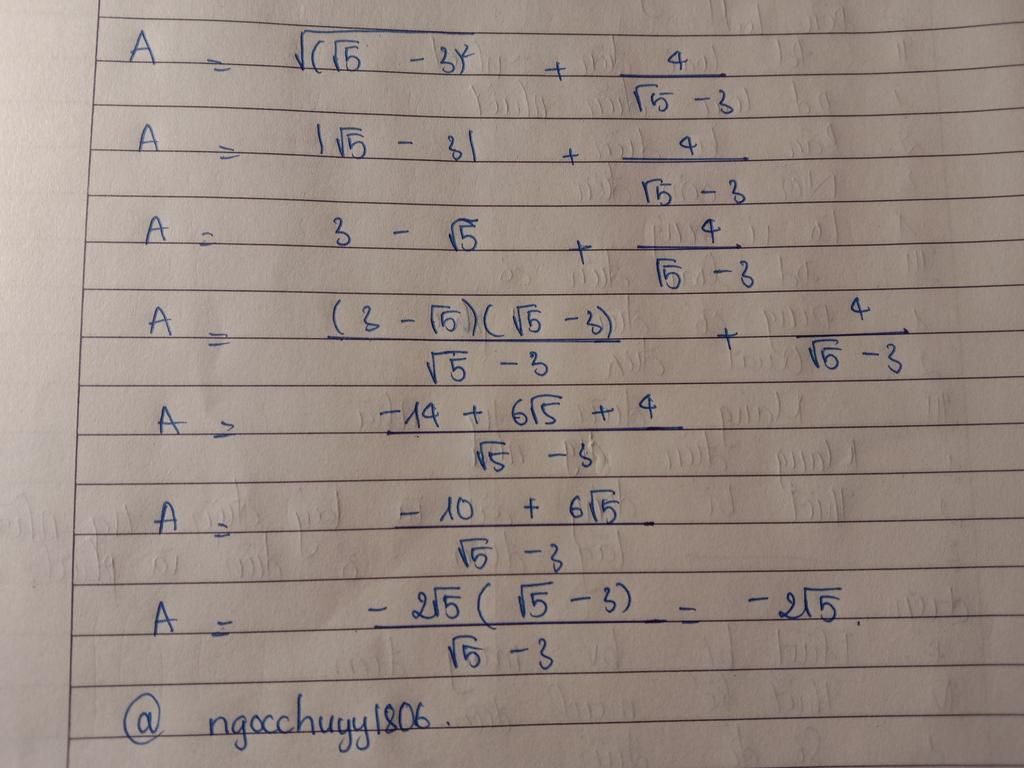 A = √(√5 - 3)² + 4/(√5 - 3)
A = |√5 - 3| + 4/(√5 - 3)
A = 3 - √5 + 4/(√5 - 3)
A = (3 - √5)(√5 - 3)/(√5 - 3) + 4/(√5 - 3)
A = (-14 + 6√5 + 4)/(√5 - 3)
A = (-10 + 6√5)/(√5 - 3)
A = -2√5(√5 - 3)/(√5 - 3) = -2√5.
@ ngocchuyy1806.